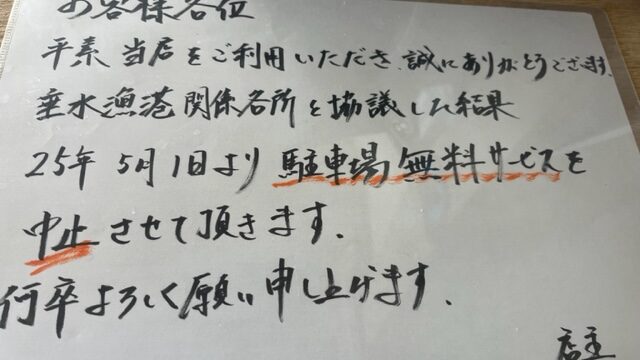 お客様各位
平素 当店をご利用いただき、誠にありがとうございます。
垂水漁港関係各所と協議した結果
25年 5月1日より 駐車場 無料サービスを
中止させて頂きます.
何卒よろしく願い申し上げます.
店主